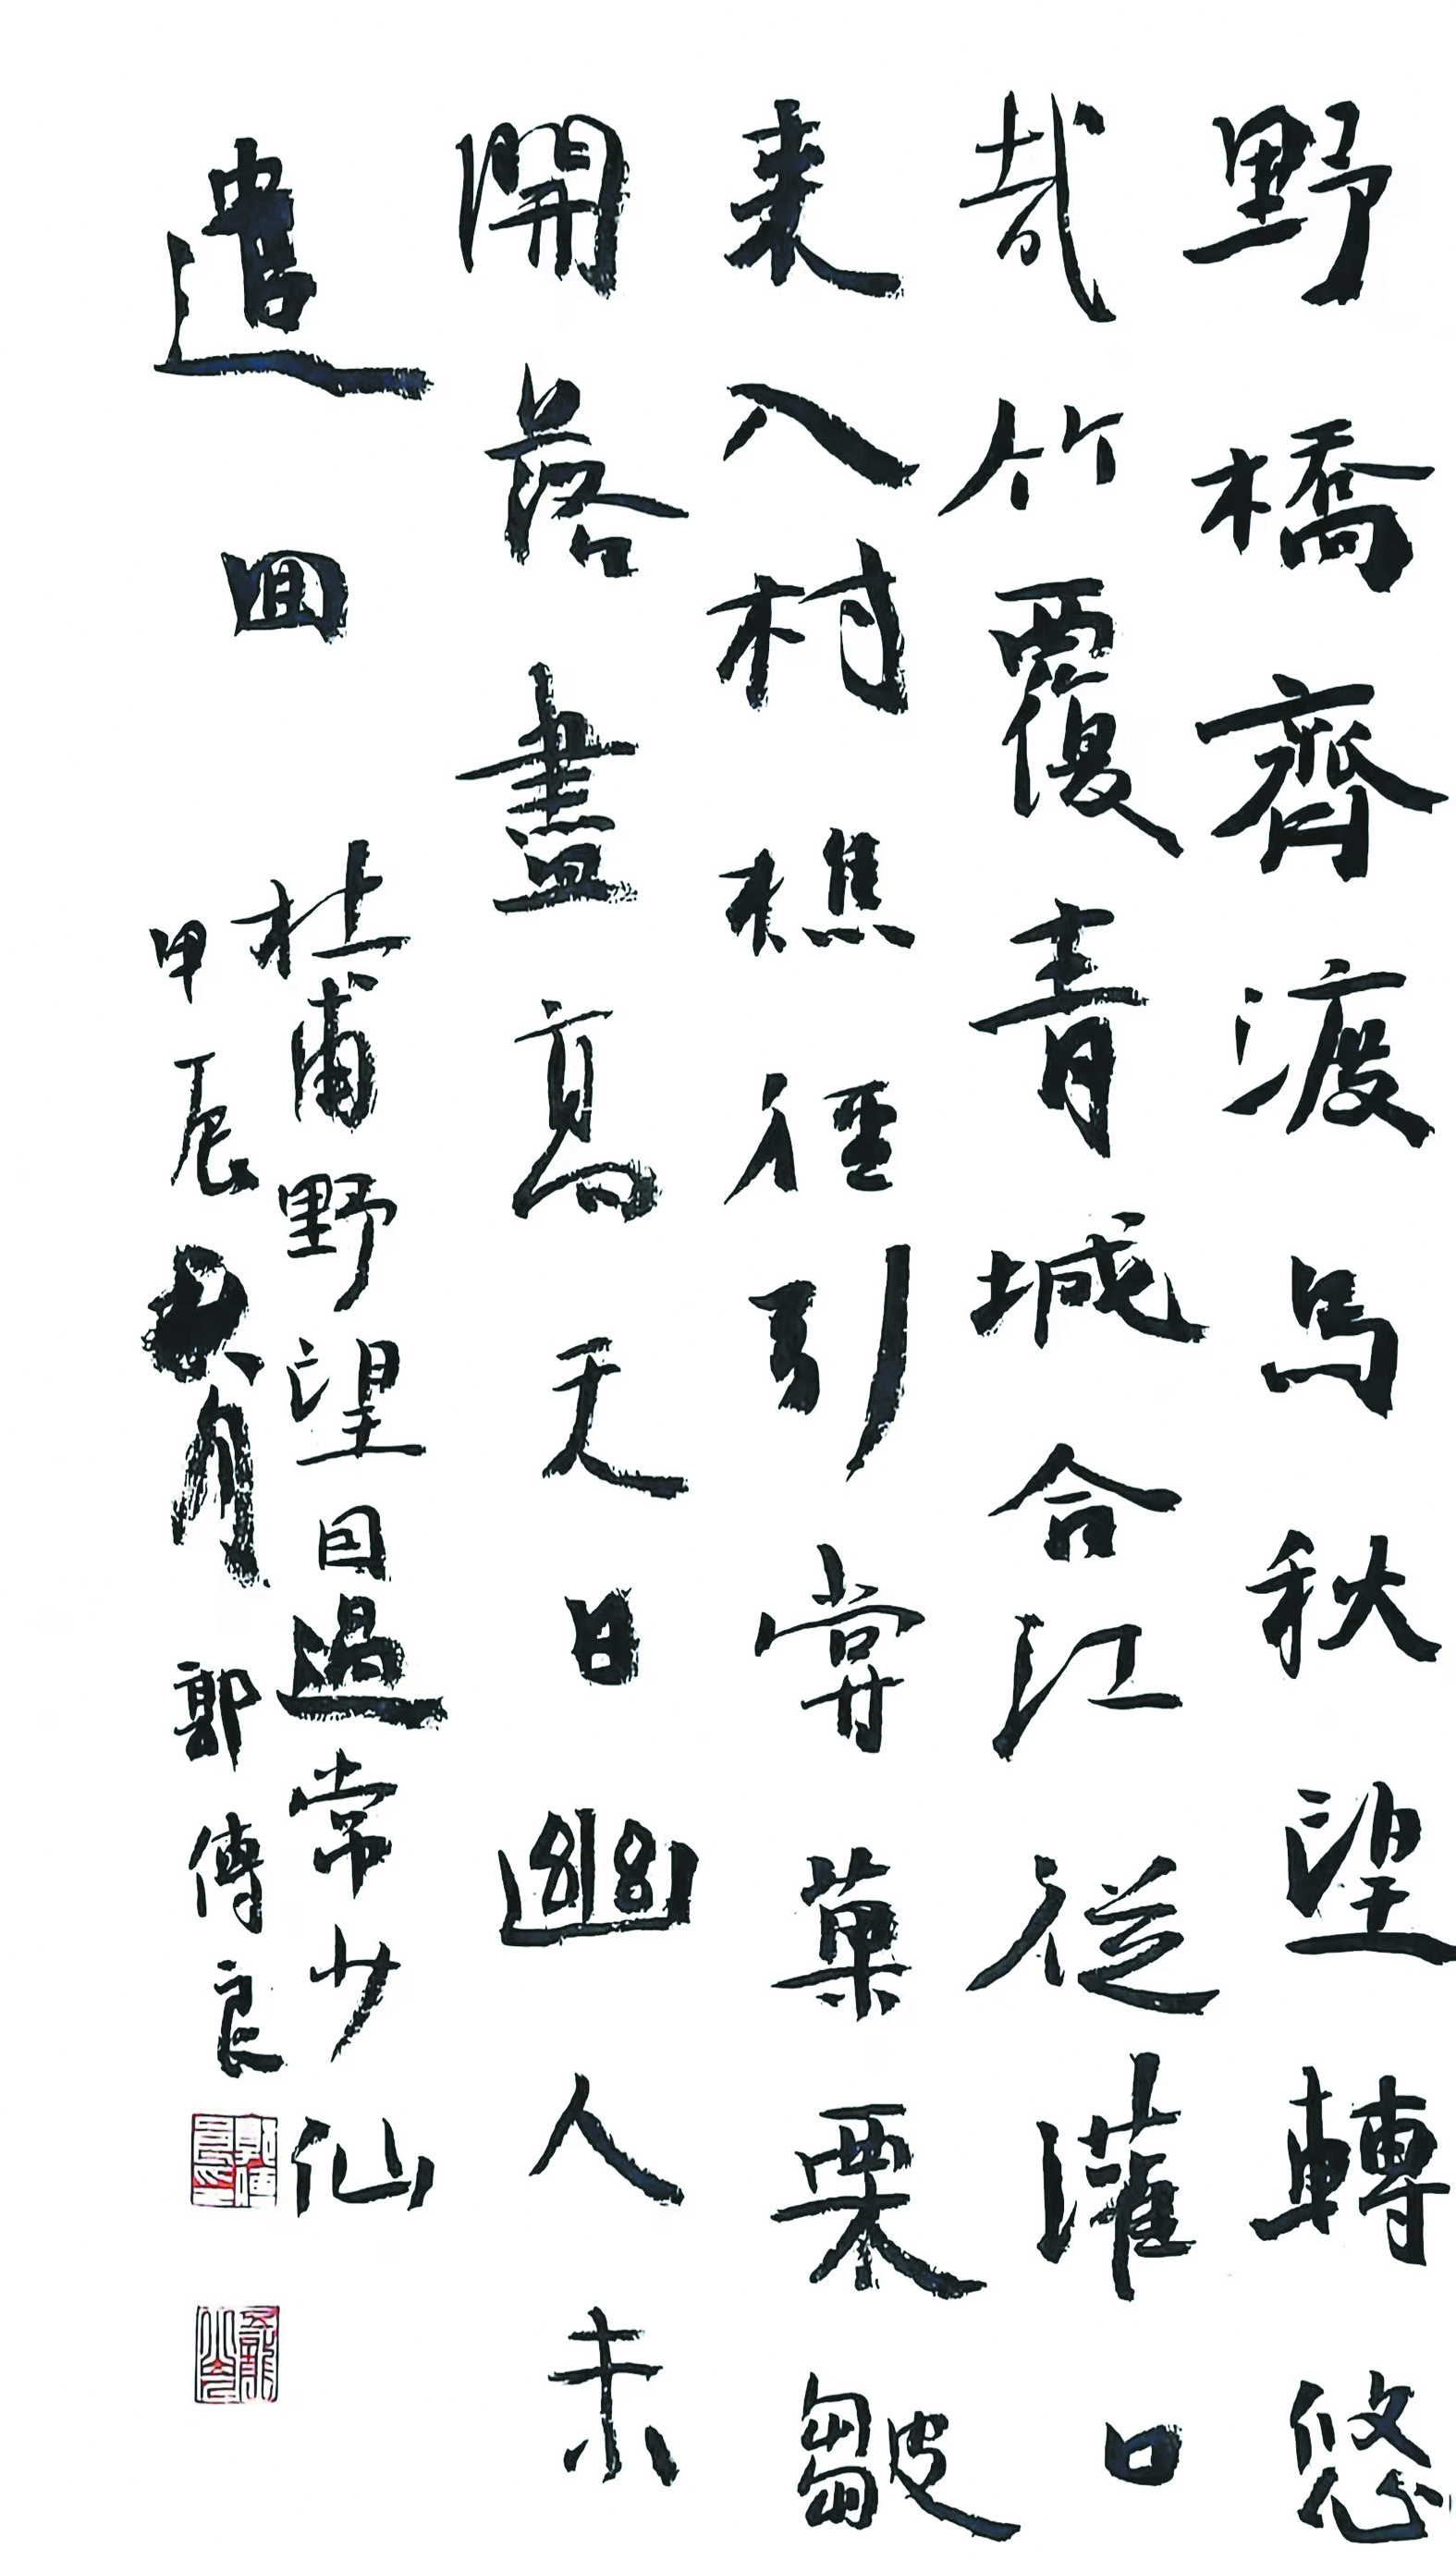 野橋齊渡馬秋望轉悠
哉竹覆青城合江從灌口
来入村樵徑引嘗菓栗皺
開落盡高天日幽人未
遣囬
杜甫野望因過常少仙
甲辰 月郭傳良